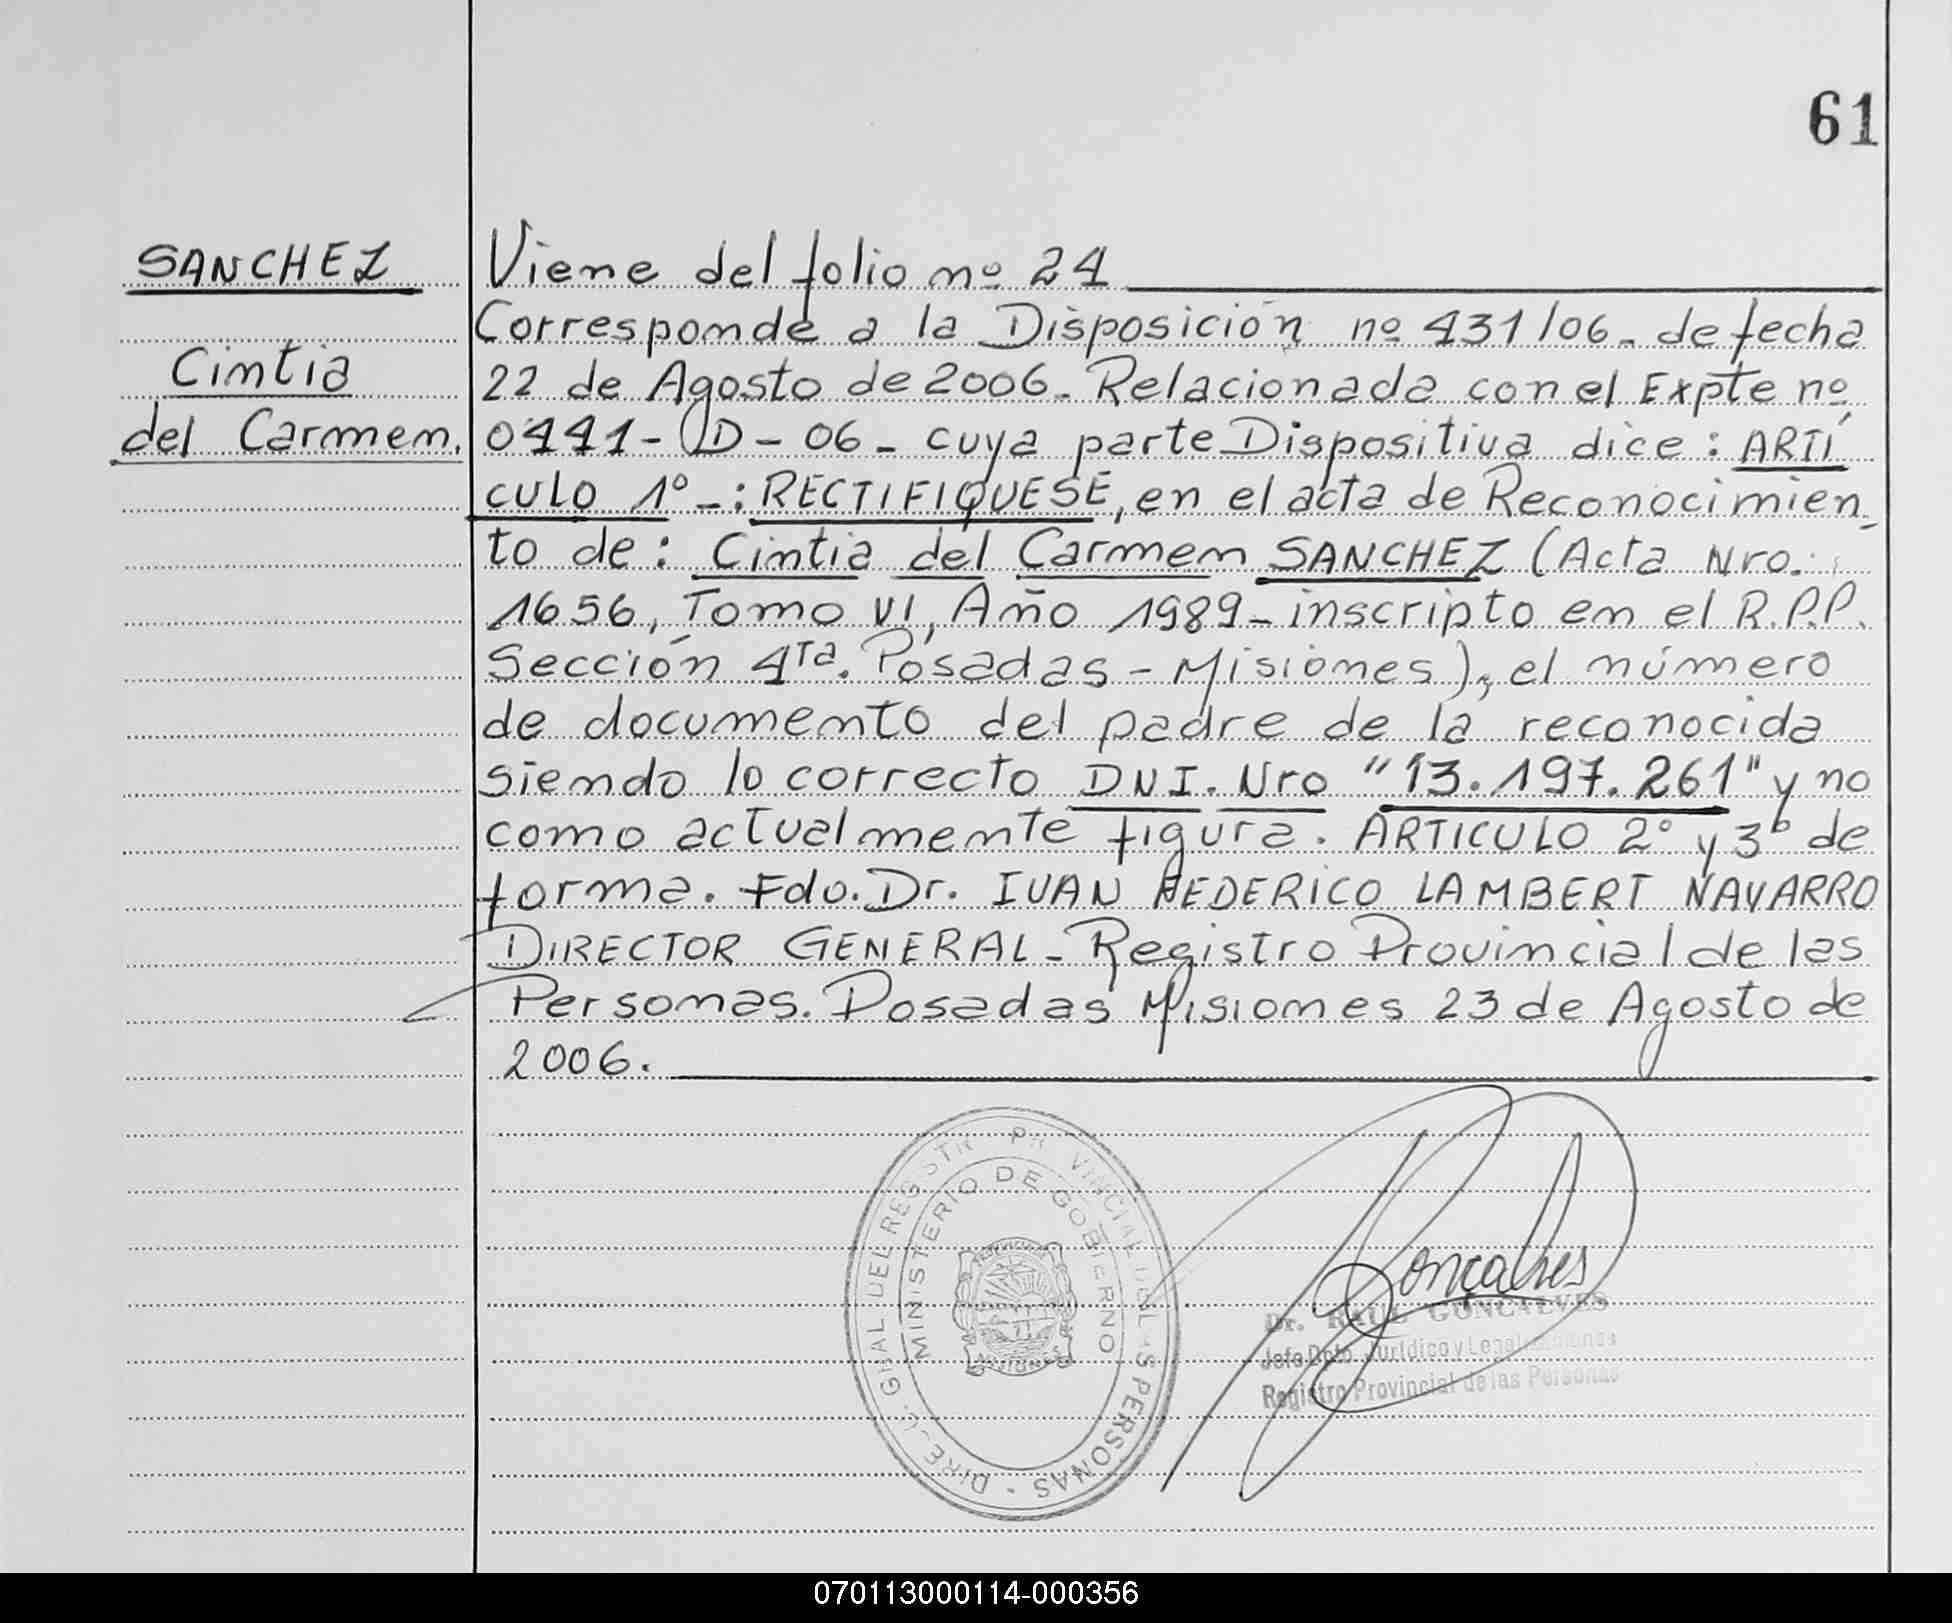 61
SANCHEZ
Cintia
del Carmen.
Viene del folio nº 24
Corresponde a la Disposición nº 431/06_ de fecha
22 de Agosto de 2006_ Relacionada con el Expte nº
0441-D-06_ cuya parte Dispositiva dice: ARTÍ
CULO 1º_: RECTIFIQUESE, en el acta de Reconocimien_
to de: Cintia del Carmen SANCHEZ (Acta Nro.
1656, Tomo VI, Año 1989_ inscripto en el R.P.P.
Sección 4ta. Posadas - Misiones), el número
de documento del padre de la reconocida
siendo lo correcto DNI. Nro "13.197.261" y no
como actualmente figura. ARTICULO 2º y 3º de
forma. Fdo. Dr. IVAN FEDERICO LAMBERT NAVARRO
DIRECTOR GENERAL_ Registro Provincial de las
Personas. Posadas Misiones 23 de Agosto de
2006.
MINISTERIO DE GOBIERNO
GRAL DEL REGISTR PR VINCIAL DE LAS PERSONAS
MISIONES
Gonçalves
Dr. RAUL GONCALVES
Jefe Dpto. Jurídico y Legal
Registro Provincial de las Personas
070113000114-000356